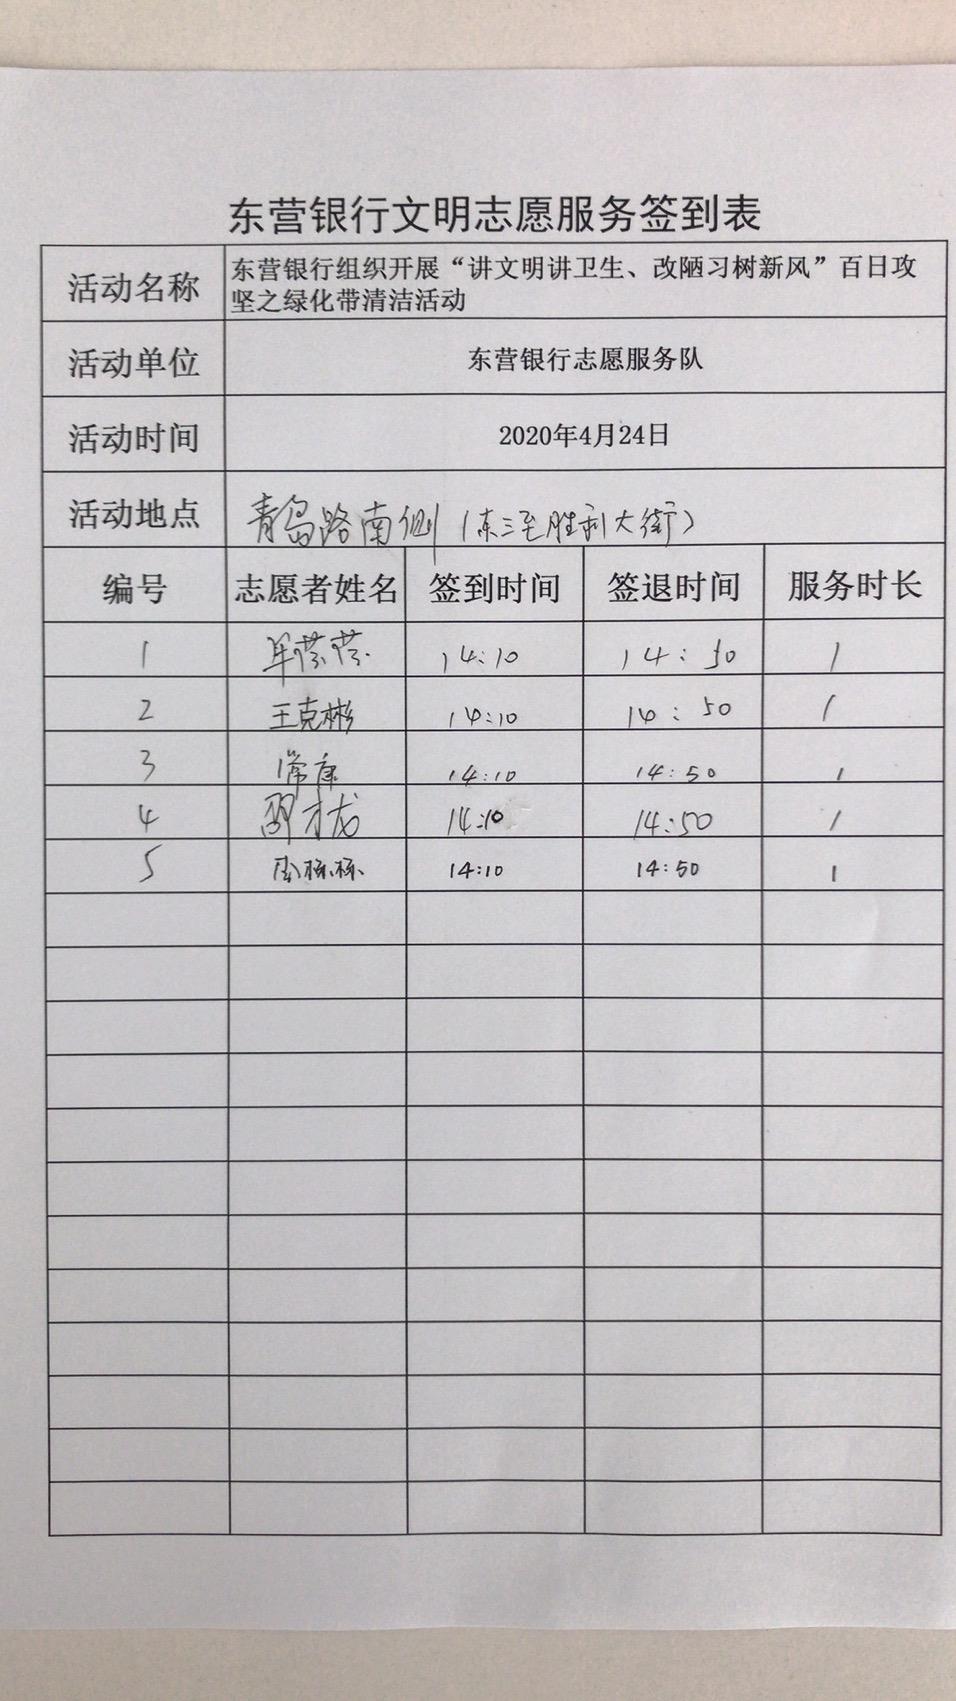 东营银行文明志愿服务签到表
活动名称 东营银行组织开展“讲文明讲卫生、改陋习树新风”百日攻
坚之绿化带清洁活动
活动单位 东营银行志愿服务队
活动时间 2020年4月24日
活动地点 青岛路南侧（东三至胜利大街）
编号 志愿者姓名 签到时间 签退时间 服务时长
1 14:10 14:50 1
2 王克彬 14:10 14:50 1
3 常康 14:10 14:50 1
4 邵才龙 14:10 14:50 1
5 14:10 14:50 1